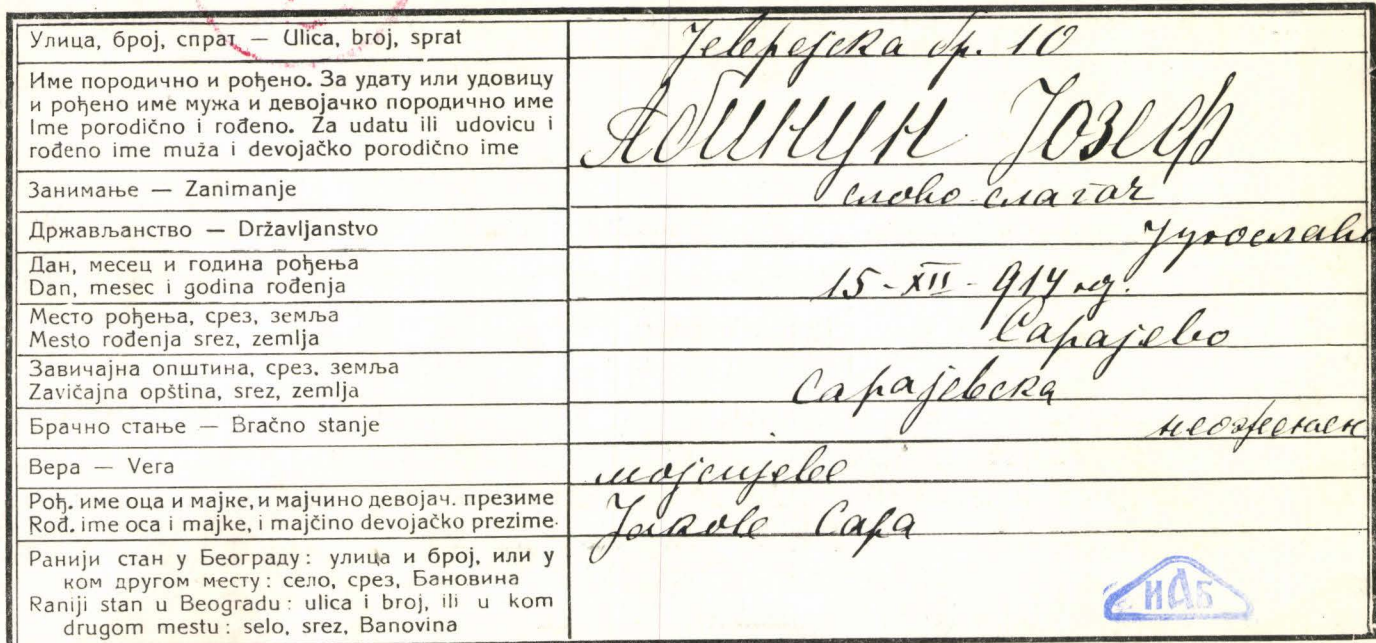 Улица, број, спрат — Ulica, broj, sprat
Јеврејска бр. 10
Име породично и рођено. За удату или удовицу
и рођено име мужа и девојачко породично име
Ime porodično i rođeno. Za udatu ili udovicu i
rođeno ime muža i devojačko porodično ime
Абинун Јозеф
Занимање — Zanimanje
слово-слагач
Држављанство — Državljanstvo
Југослав
Дан, месец и година рођења
Dan, mesec i godina rođenja
15-XII-914
Место рођења, срез, земља
Mesto rođenja srez, zemlja
Сарајево
Завичајна општина, срез, земља
Zavičajna opština, srez, zemlja
Сарајевска
Брачно стање — Bračno stanje
неожењен
Вера — Vera
мојсијеве
Рођ. име оца и мајке, и мајчино девојач. презиме
Rođ. ime oca i majke, i majčino devojačko prezime.
Јакове Сара
Ранији стан у Београду: улица и број, или у
ком другом месту: село, срез, Бановина
Raniji stan u Beogradu: ulica i broj, ili u kom
drugom mestu: selo, srez, Banovina
ИАБ